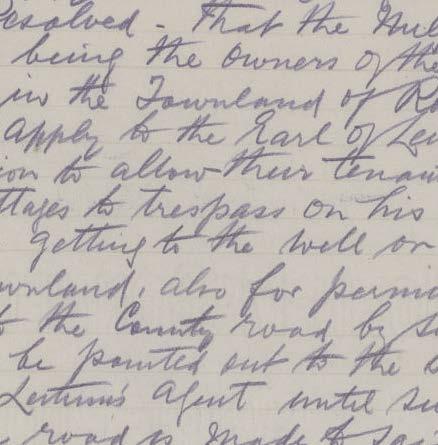 esolved - That the Mil
being the Owners of the
in the Townland of Ro
apply to the Earl of Lei
ion to allow their tenan
ttages to trespass on his
getting to the well on
ownland, also for permi
to the County road by
be pointed out to the
Leitrim's Agent until su
road is made to